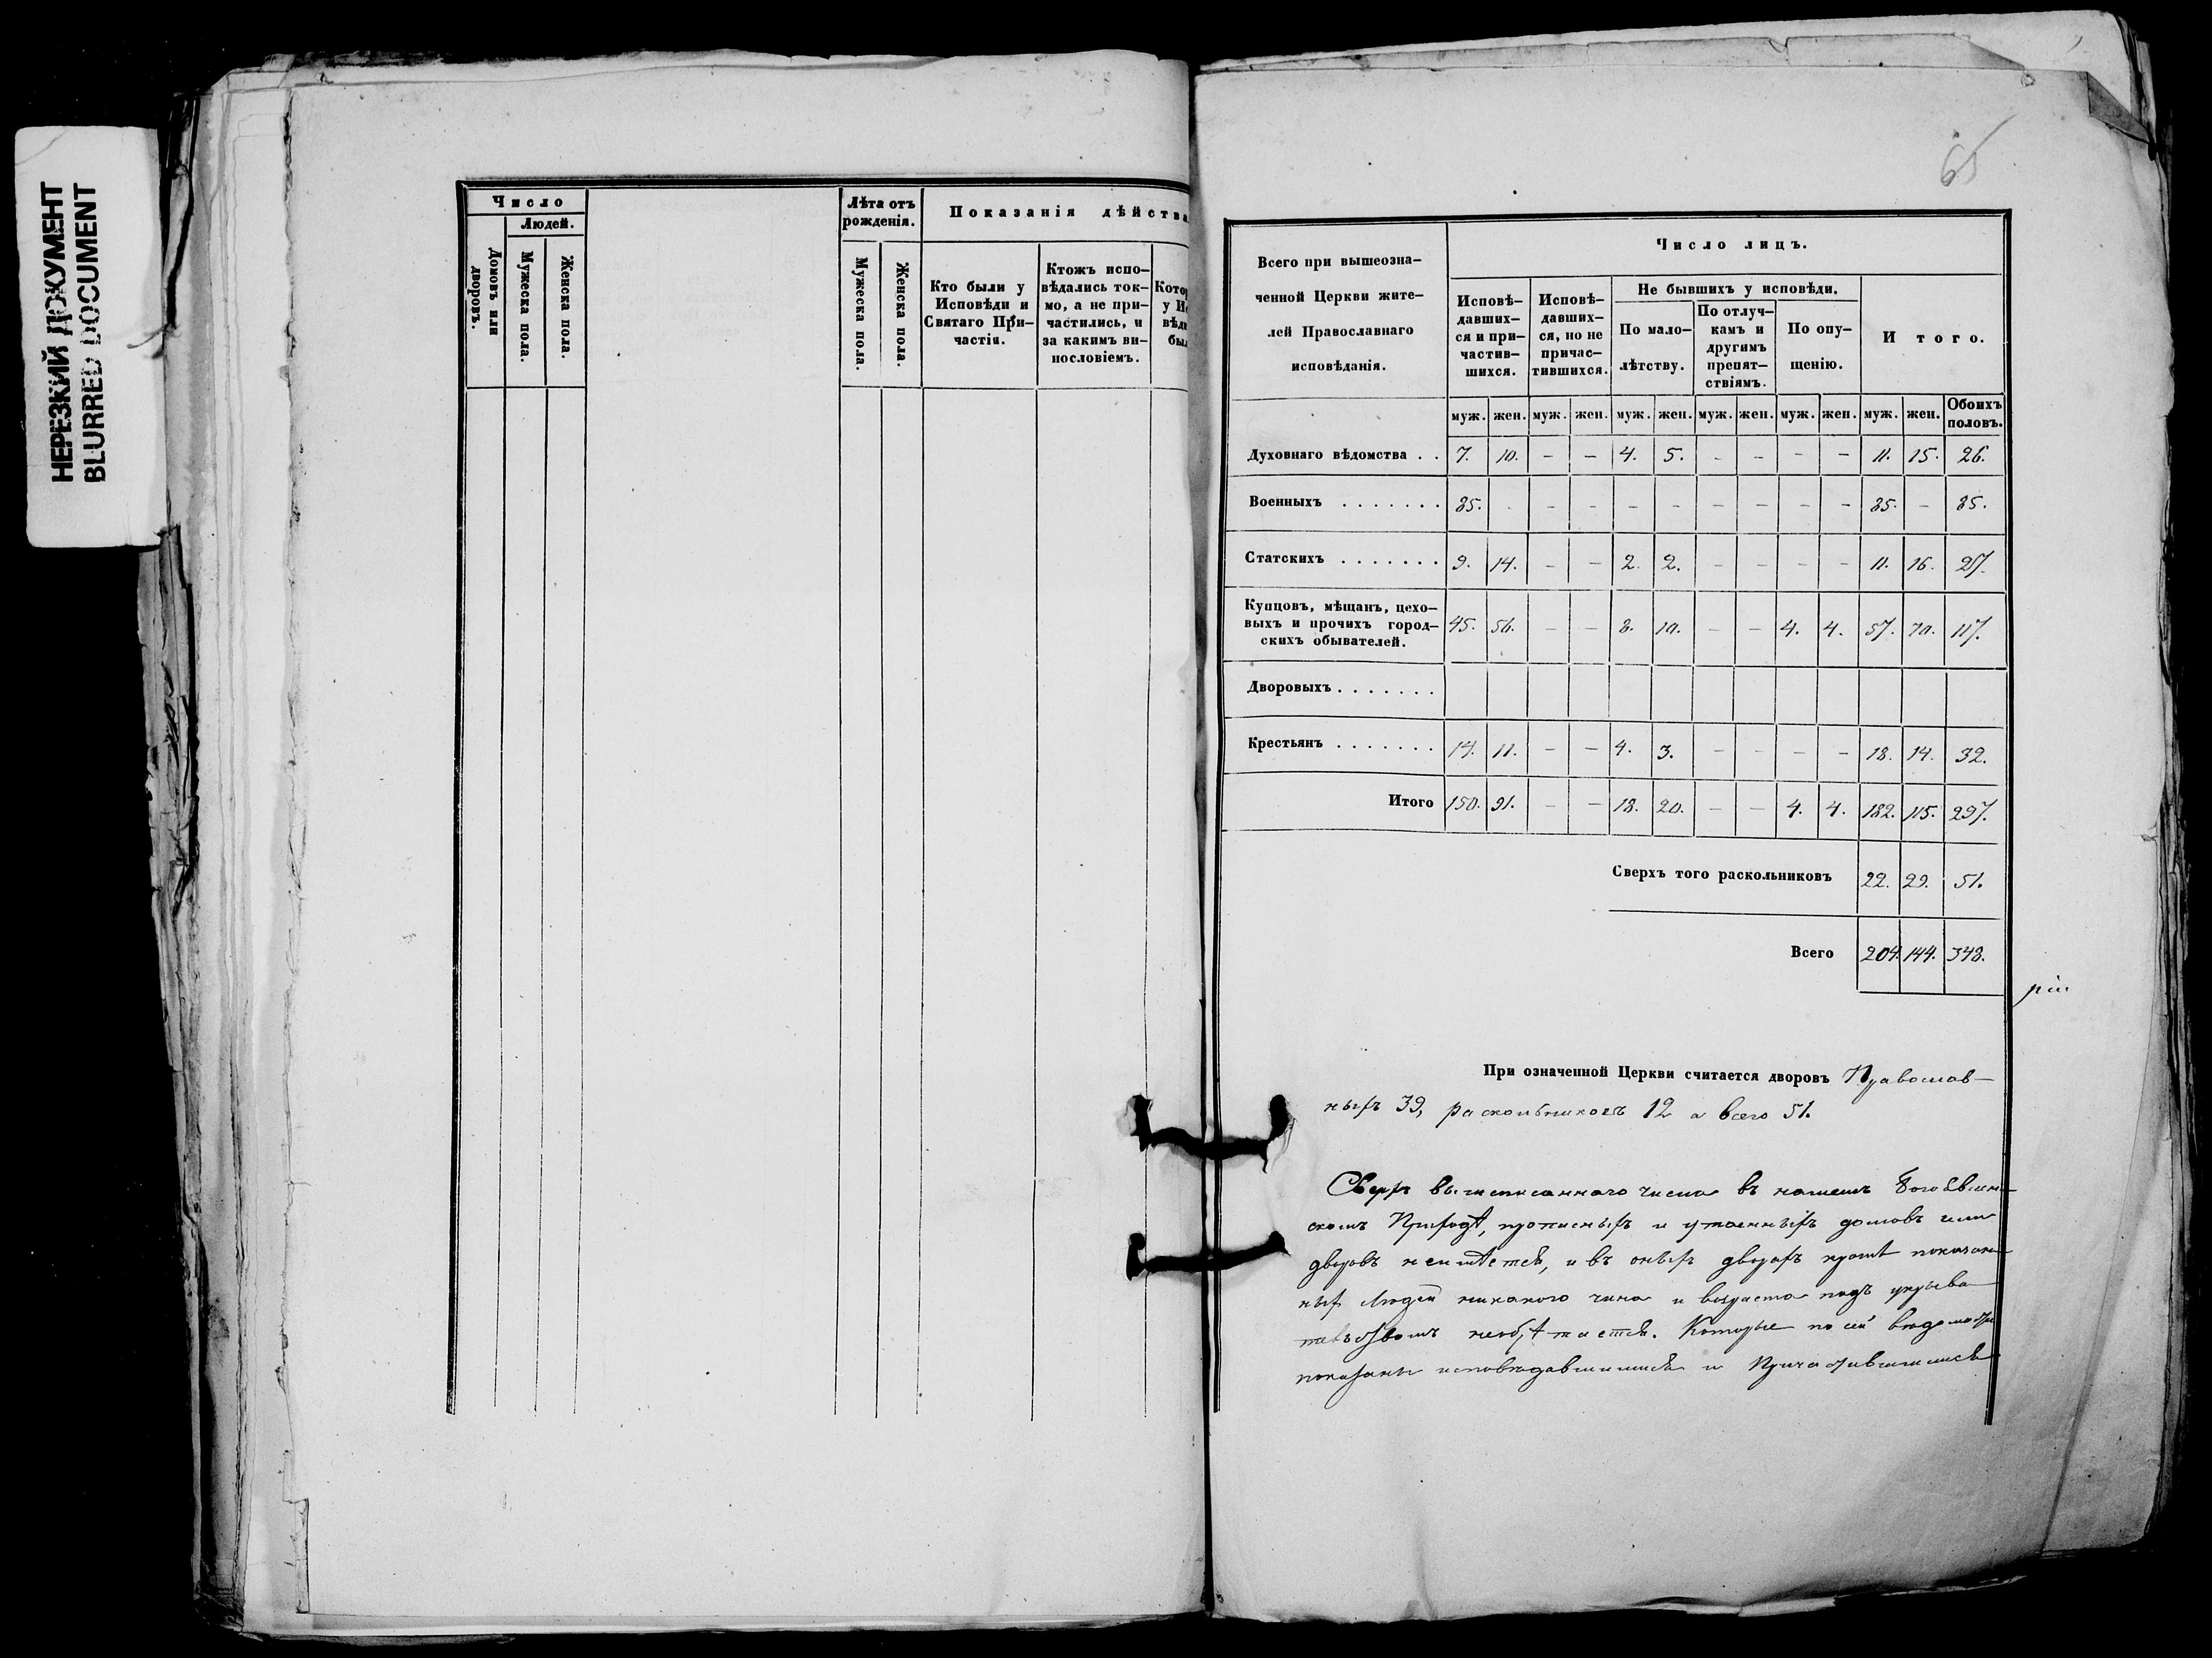 НЕРЕЗКИЙ ДОКУМЕНТ
BLURRED DOCUMENT
Число
Людей.
Домовъ или дворовъ.
Мужеска пола.
Женска пола.
Лѣта отъ рожденія.
Мужеска пола.
Женска пола.
Показанія дѣйства
Кто были у
Исповѣди и
Святаго При-
частія.
Ктожъ испо-
вѣдались ток-
мо, а не при-
частились, и
за какимъ ви-
нословіемъ.
65
Всего при вышеозна-
ченной Церкви жите-
лей Православнаго
исповѣданія.
Число лицъ.
Исповѣ-
давших-
ся и при-
частив-
шихся.
Исповѣ-
давших-
ся, но не
причас-
тившихся.
Не бывшихъ у исповѣди.
По мало-
лѣтству.
По отлуч-
камъ и
другимъ
препят-
ствіямъ.
По опу-
щенію.
Итого.
муж. жен. муж. жен. муж. жен. муж. жен. муж. жен. муж. жен. Обоихъ половъ.
Духовнаго вѣдомства . . 7. 10. – – 4. 5. – – – – 11. 15. 26.
Военныхъ . . . . . . . 85. – – – – – – – – – 85. – 85.
Статскихъ . . . . . . . 9. 14. – – 2. 2. – – – – 11. 16. 27.
Купцовъ, мѣщанъ, цехо-
выхъ и прочихъ город- 45. 56. – – 8. 10. – – 4. 4. 57. 70. 117.
скихъ обывателей.
Дворовыхъ . . . . . . .
Крестьянъ . . . . . . . 14. 11. – – 4. 3. – – – – 18. 14. 32.
Итого 150. 91. – – 18. 20. – – 4. 4. 182. 115. 297.
Сверхъ того раскольниковъ 22. 29. 51.
Всего 204. 144. 348.
При означенной Церкви считается дворовъ Православ-
ныхъ 39, раскольниковъ 12 а всего 51.
Сверхъ вышеписаннаго числа въ нашемъ Богоявлен-
скомъ Приходѣ, прописныхъ и утаенныхъ домовъ или
дворовъ неимѣется, и въ оныхъ дворахъ кромѣ показан-
ныхъ людей никакого чина и возраста подъ укрыва-
тельствомъ необрѣтается. Которые по сей вѣдомости
показаны исповѣдавшимися и Причастившимися